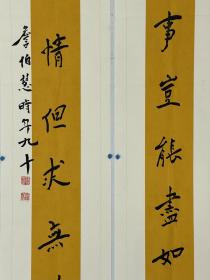 事豈能盡如
情但求無
詹伯慧時年九十